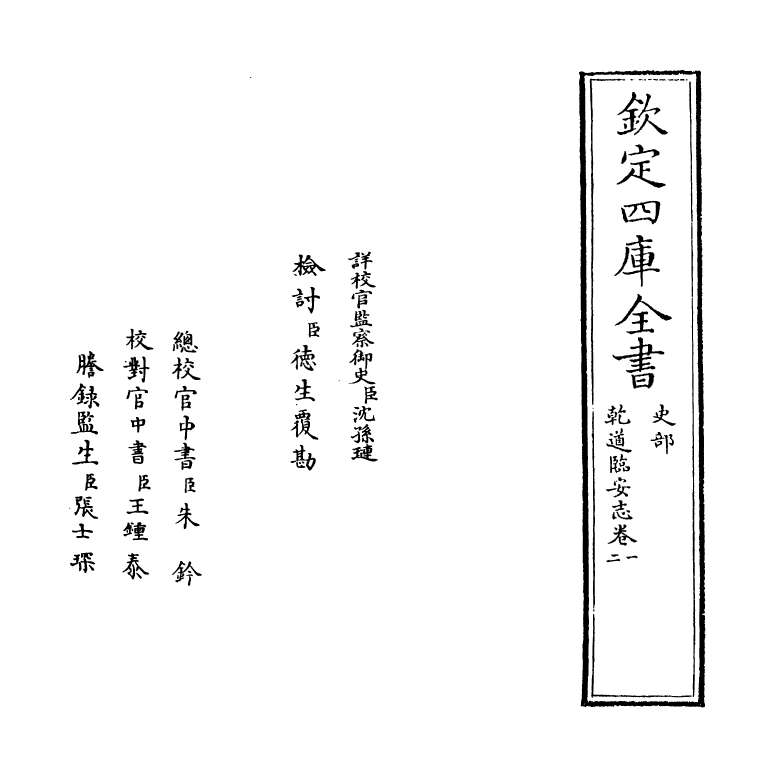 欽定四庫全書
史部
乾道臨安志卷一二
詳校官監察御史臣沈孫璉
檢討臣德生覆勘
總校官中書臣朱鈐
校對官中書臣王鍾泰
謄錄監生臣張士琛